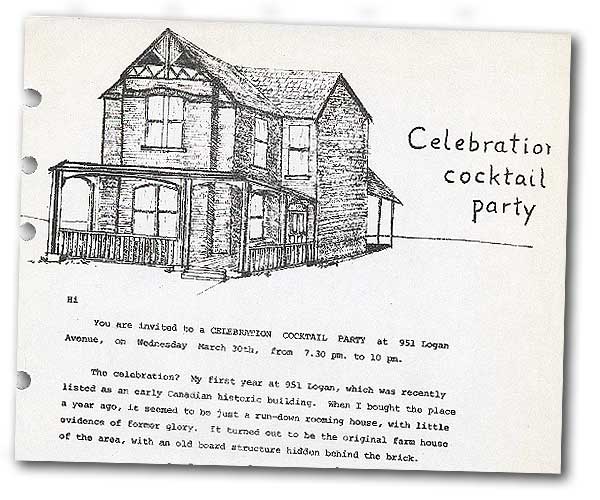 Celebration
cocktail
party
Hi
You are invited to a CELEBRATION COCKTAIL PARTY at 951 Logan
Avenue, on Wednesday March 30th, from 7.30 pm. to 10 pm.
The celebration? My first year at 951 Logan, which was recently
listed as an early Canadian historic building. When I bought the place
a year ago, it seemed to be just a run-down rooming house, with little
evidence of former glory. It turned out to be the original farm house
of the area, with an old board structure hidden behind the brick.